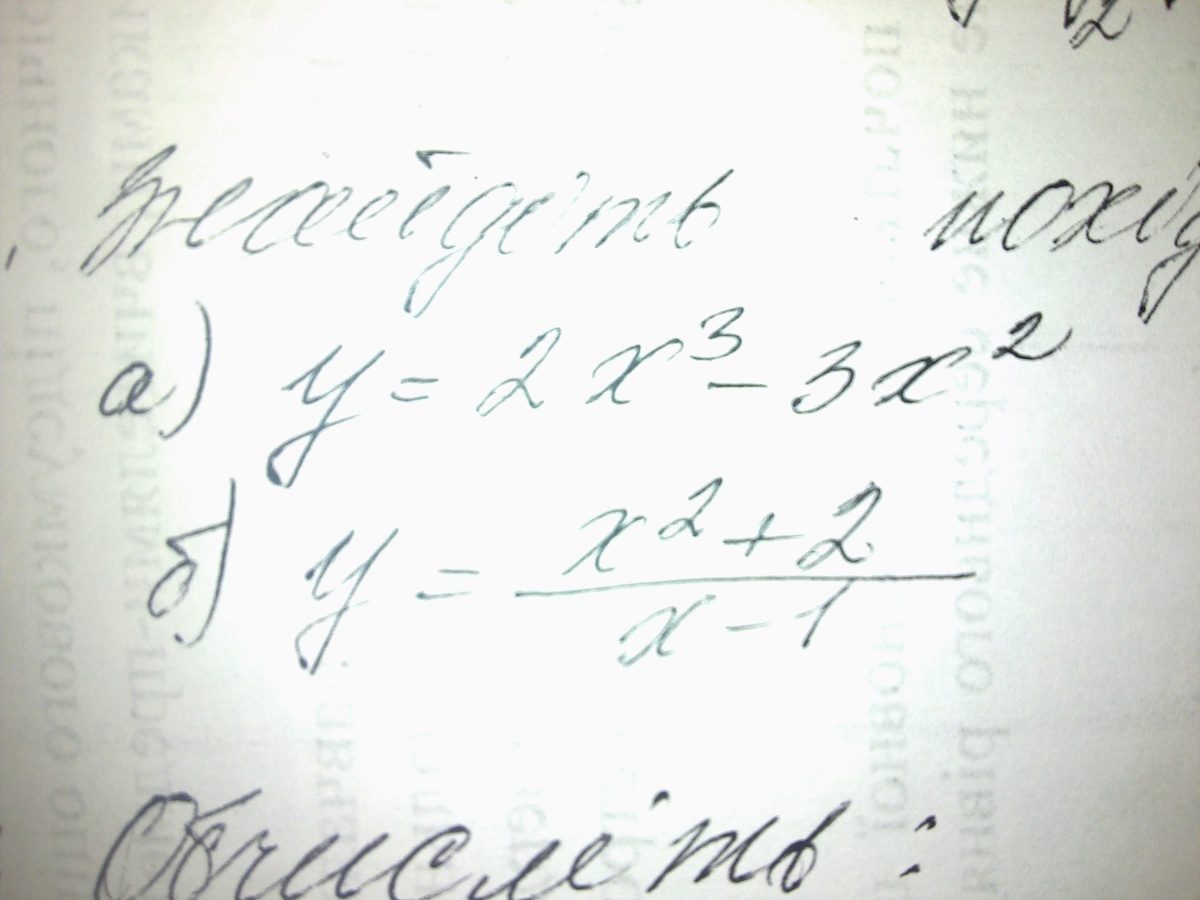 Знайдіть похід
а) y = 2x³ - 3x²
б) y = (x² + 2) / (x - 1)
Обчисліть: